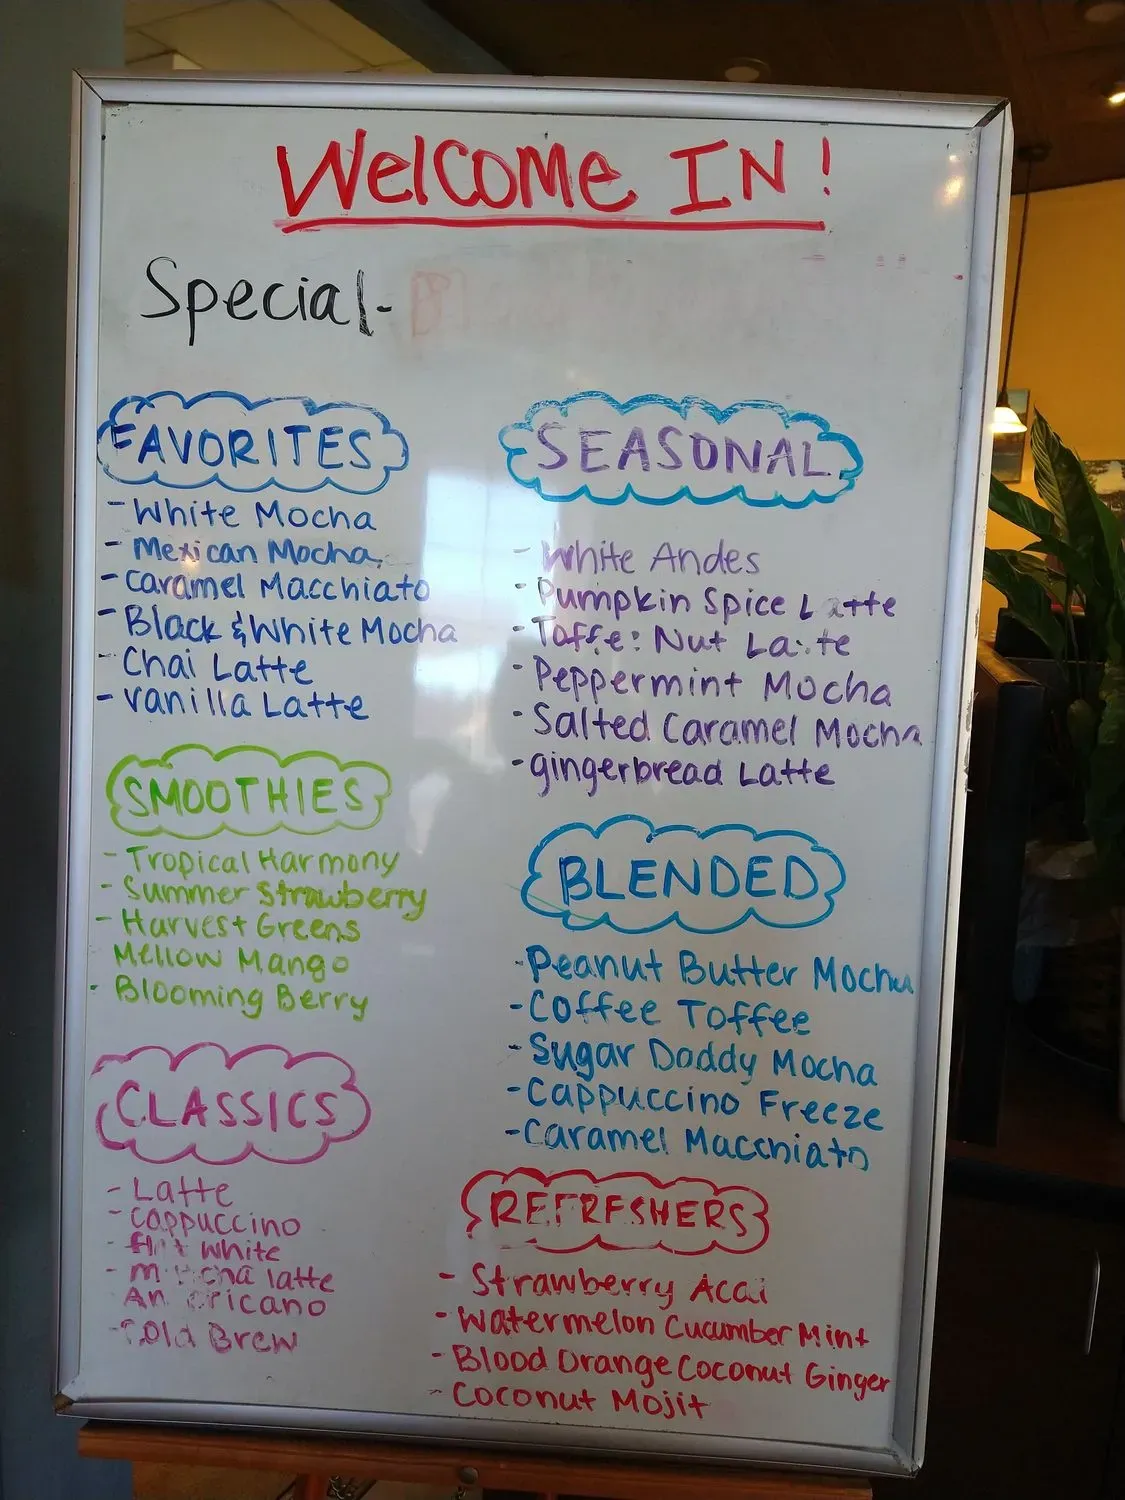 Welcome IN!
Special-
FAVORITES
- White Mocha
- Mexican Mocha
- Caramel Macchiato
- Black & White Mocha
- Chai Latte
- Vanilla Latte
SMOOTHIES
- Tropical Harmony
- Summer Strawberry
- Harvest Greens
Mellow Mango
- Blooming Berry
CLASSICS
- Latte
- Cappuccino
- flat white
- latte
Americano
- Cold Brew
SEASONAL
- White Andes
- Pumpkin Spice Latte
- Toffee Nut Latte
- Peppermint Mocha
- Salted Caramel Mocha
- gingerbread Latte
BLENDED
- Peanut Butter Mocha
- Coffee Toffee
- Sugar Daddy Mocha
- Cappuccino Freeze
- Caramel Macchiato
REFRESHERS
- Strawberry Acai
- Watermelon Cucumber Mint
- Blood Orange Coconut Ginger
- Coconut Mojit